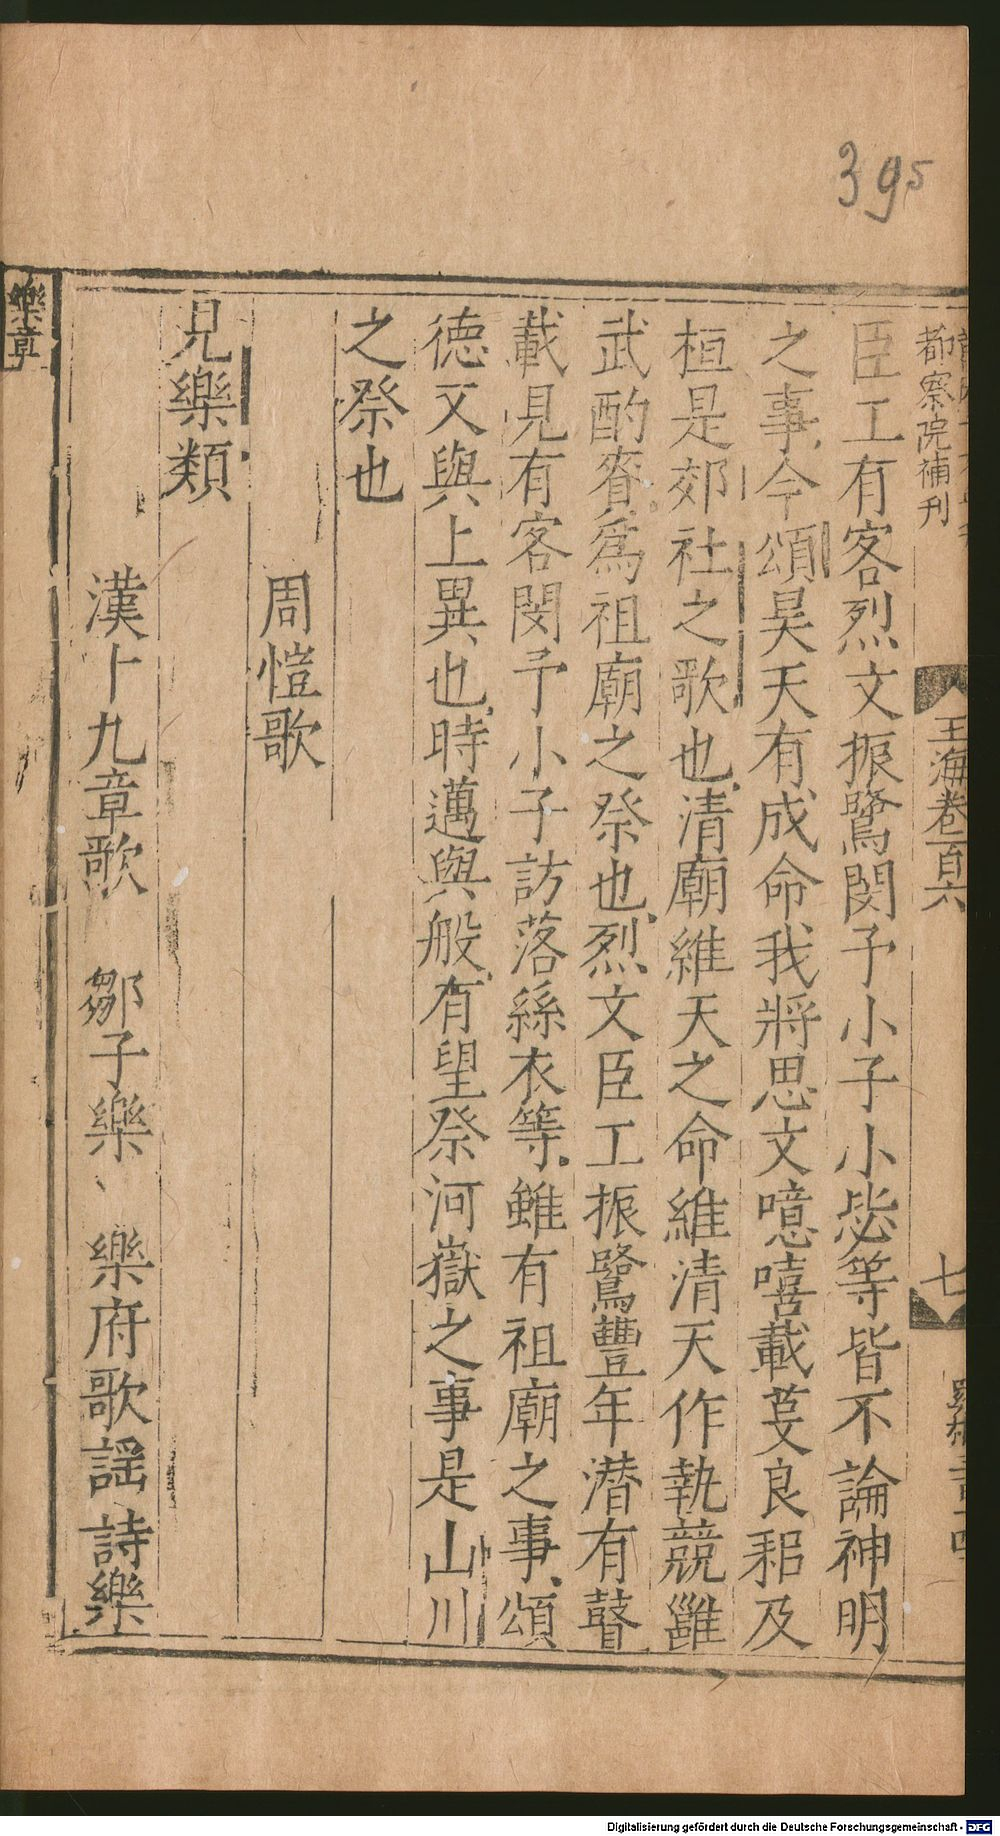 395
都察院補刊
玉海卷一百六
七
臣工有客烈文振鷺閔予小子小毖等皆不論神明
之事今頌昊天有成命我將思文噫嘻載芟良耜及
桓是郊社之歌也清廟維天之命維清天作執競雝
武酌賚爲祖廟之祭也烈文臣工振鷺豐年潜有瞽
載見有客閔予小子訪落絲衣等雖有祖廟之事頌
德又與上異也時邁與般有望祭河嶽之事是山川
之祭也
周愷歌
見樂類
漢十九章歌 鄒子樂、 樂府歌謡 詩樂
樂章
Digitalisierung gefördert durch die Deutsche Forschungsgemeinschaft - DFG